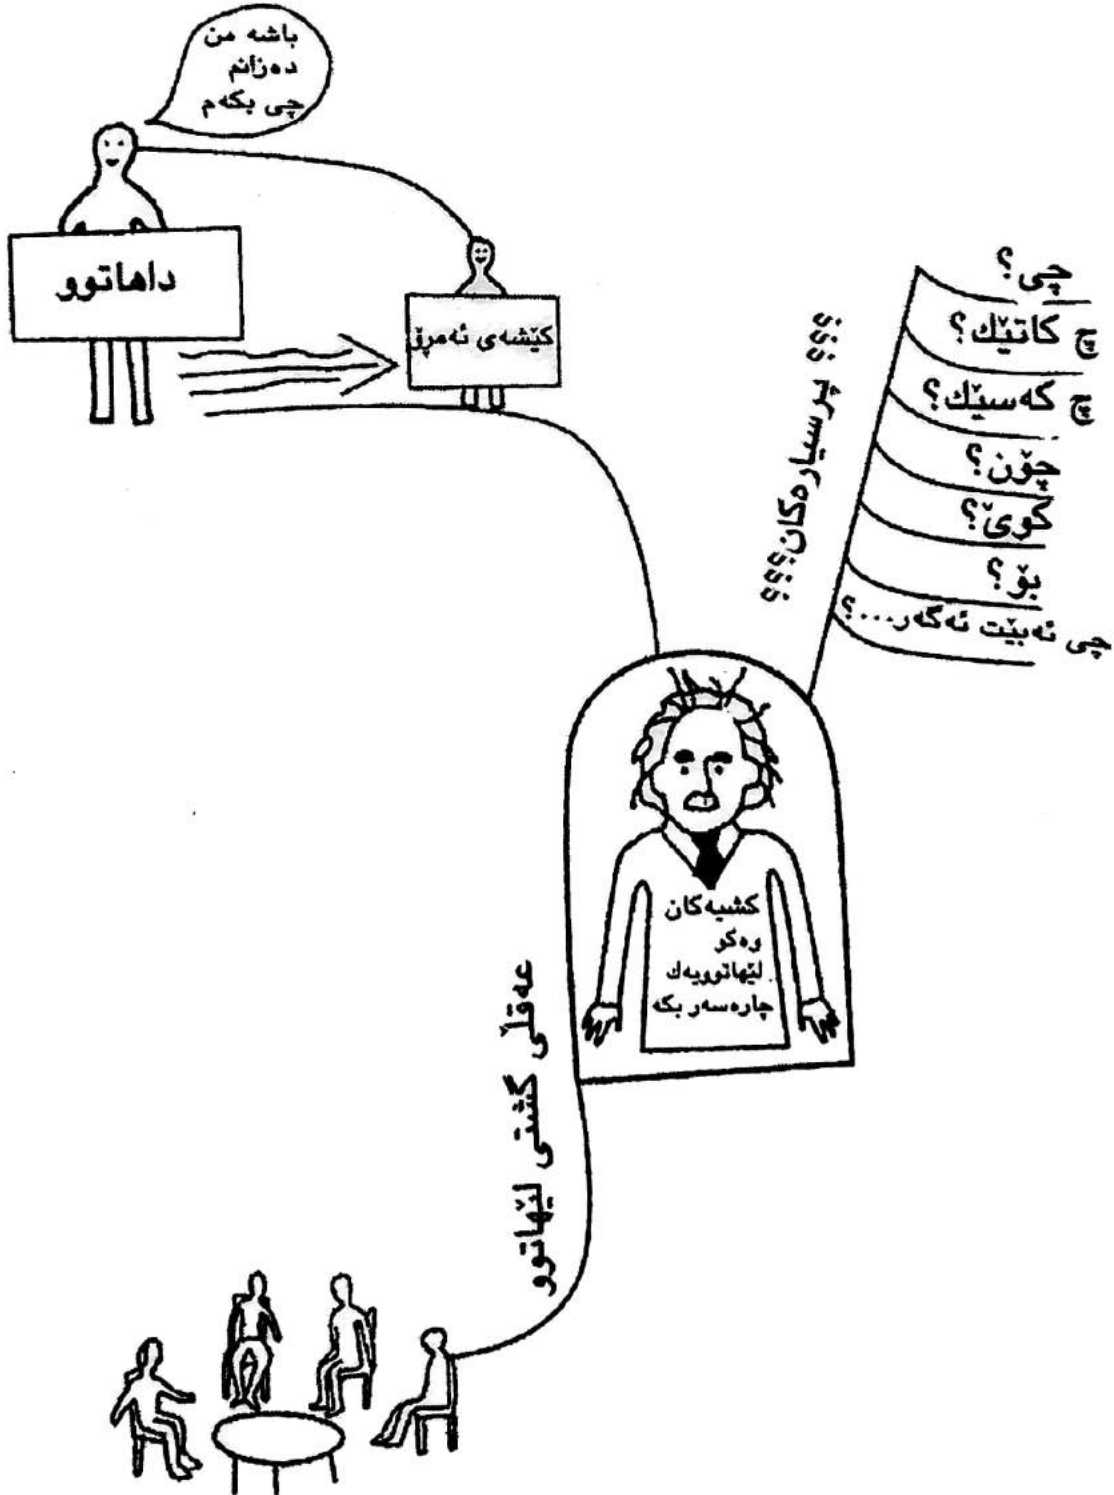 باشە من
دەزانم
چی بکەم
داهاتوو
کێشەی ئەمڕۆ
؟؟؟ پرسیارەکان؟؟؟
چی؟
چ کاتێك؟
چ کەسێك؟
چۆن؟
کوێ؟
بۆ؟
چی ئەبێت ئەگەر...؟
کشیەکان
وەکو
لێهاتوویەك
چارەسەر بکە
عەقڵی گشتی لێهاتوو